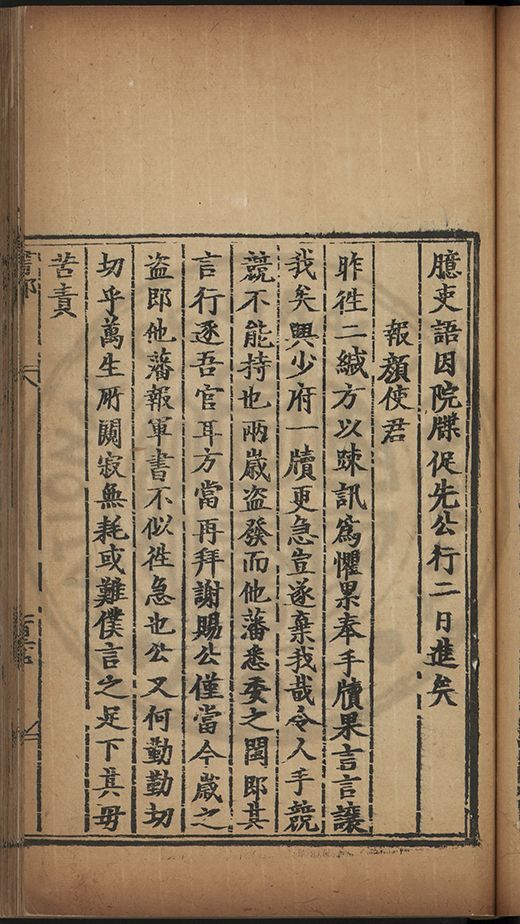 臆吏語因院牒促先公行二日進矣
報顏使君
昨徃二緘方以踈訊為懼果奉手牘果言言讓
我矣與少府一牘更急豈遂棄我哉令人手競
競不能持也兩歲盗發而他藩悉委之閩即其
言行逐吾官耳方當再拜謝賜公僅當今歲之
盗即他藩報軍書不似徃急也公又何勤勤切
切乎萬生所闕寂無耗或難僕言之足下其毋
苦責